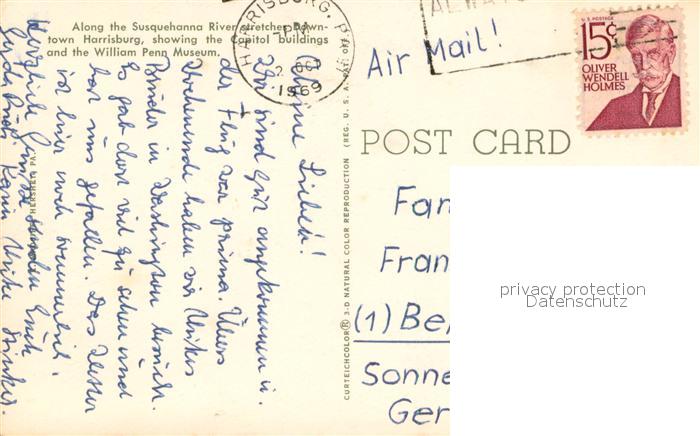 Along the Susquehanna River stretches Down-
town Harrisburg, showing the Capitol buildings
and the William Penn Museum.
HARRISBURG, PA
PM
2 OCT
1969
ALWAYS
U.S. POSTAGE
15c
OLIVER
WENDELL
HOLMES
Air Mail!
POST CARD
CURTEICHCOLOR® 3-D NATURAL COLOR REPRODUCTION (REG. U. S. A. PAT. OFF.)
HERSHEY, PA.
Meine Lieben!
Wir sind gut angekommen u.
der Flug war prima. Übers
Wochenende haben wir Ulrikes
Bruder in Washington besucht.
Es gab dort viel zu sehen und
hat uns gefallen. Das Wetter
ist hier noch sommerlich.
Herzliche Grüße senden Euch
Karin Ulrike
Fam
Fran
(1) Be
Sonne
Ger
privacy protection
Datenschutz